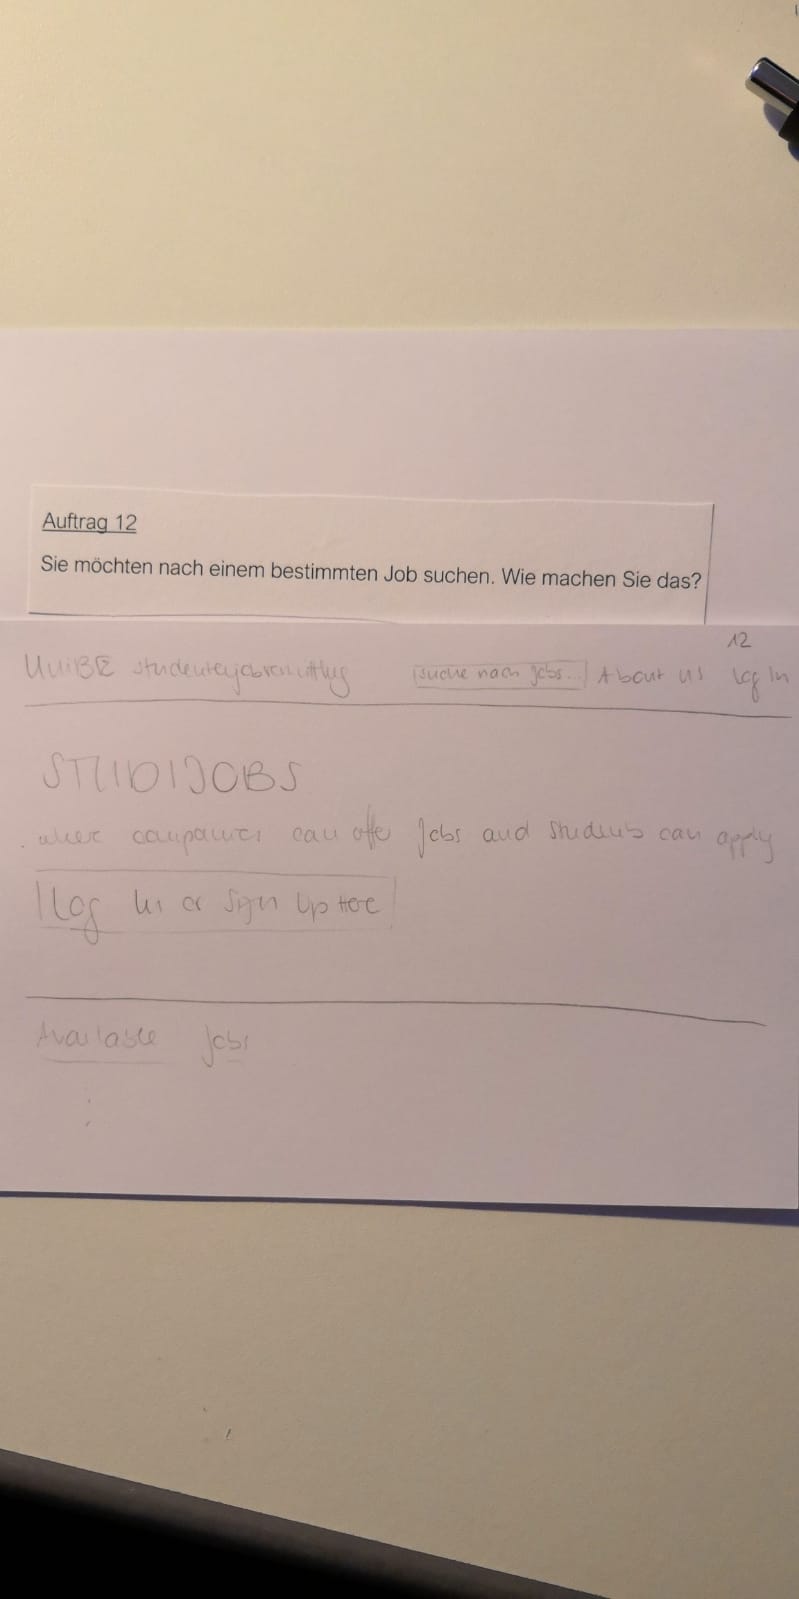 Auftrag 12
Sie möchten nach einem bestimmten Job suchen. Wie machen Sie das?
12
UNIBE Studentenjobvermittlung suche nach Jobs... About us Log In
STUDIJOBS
where companies can offer Jobs and Students can apply
Log In or Sign Up Here
Available Jobs